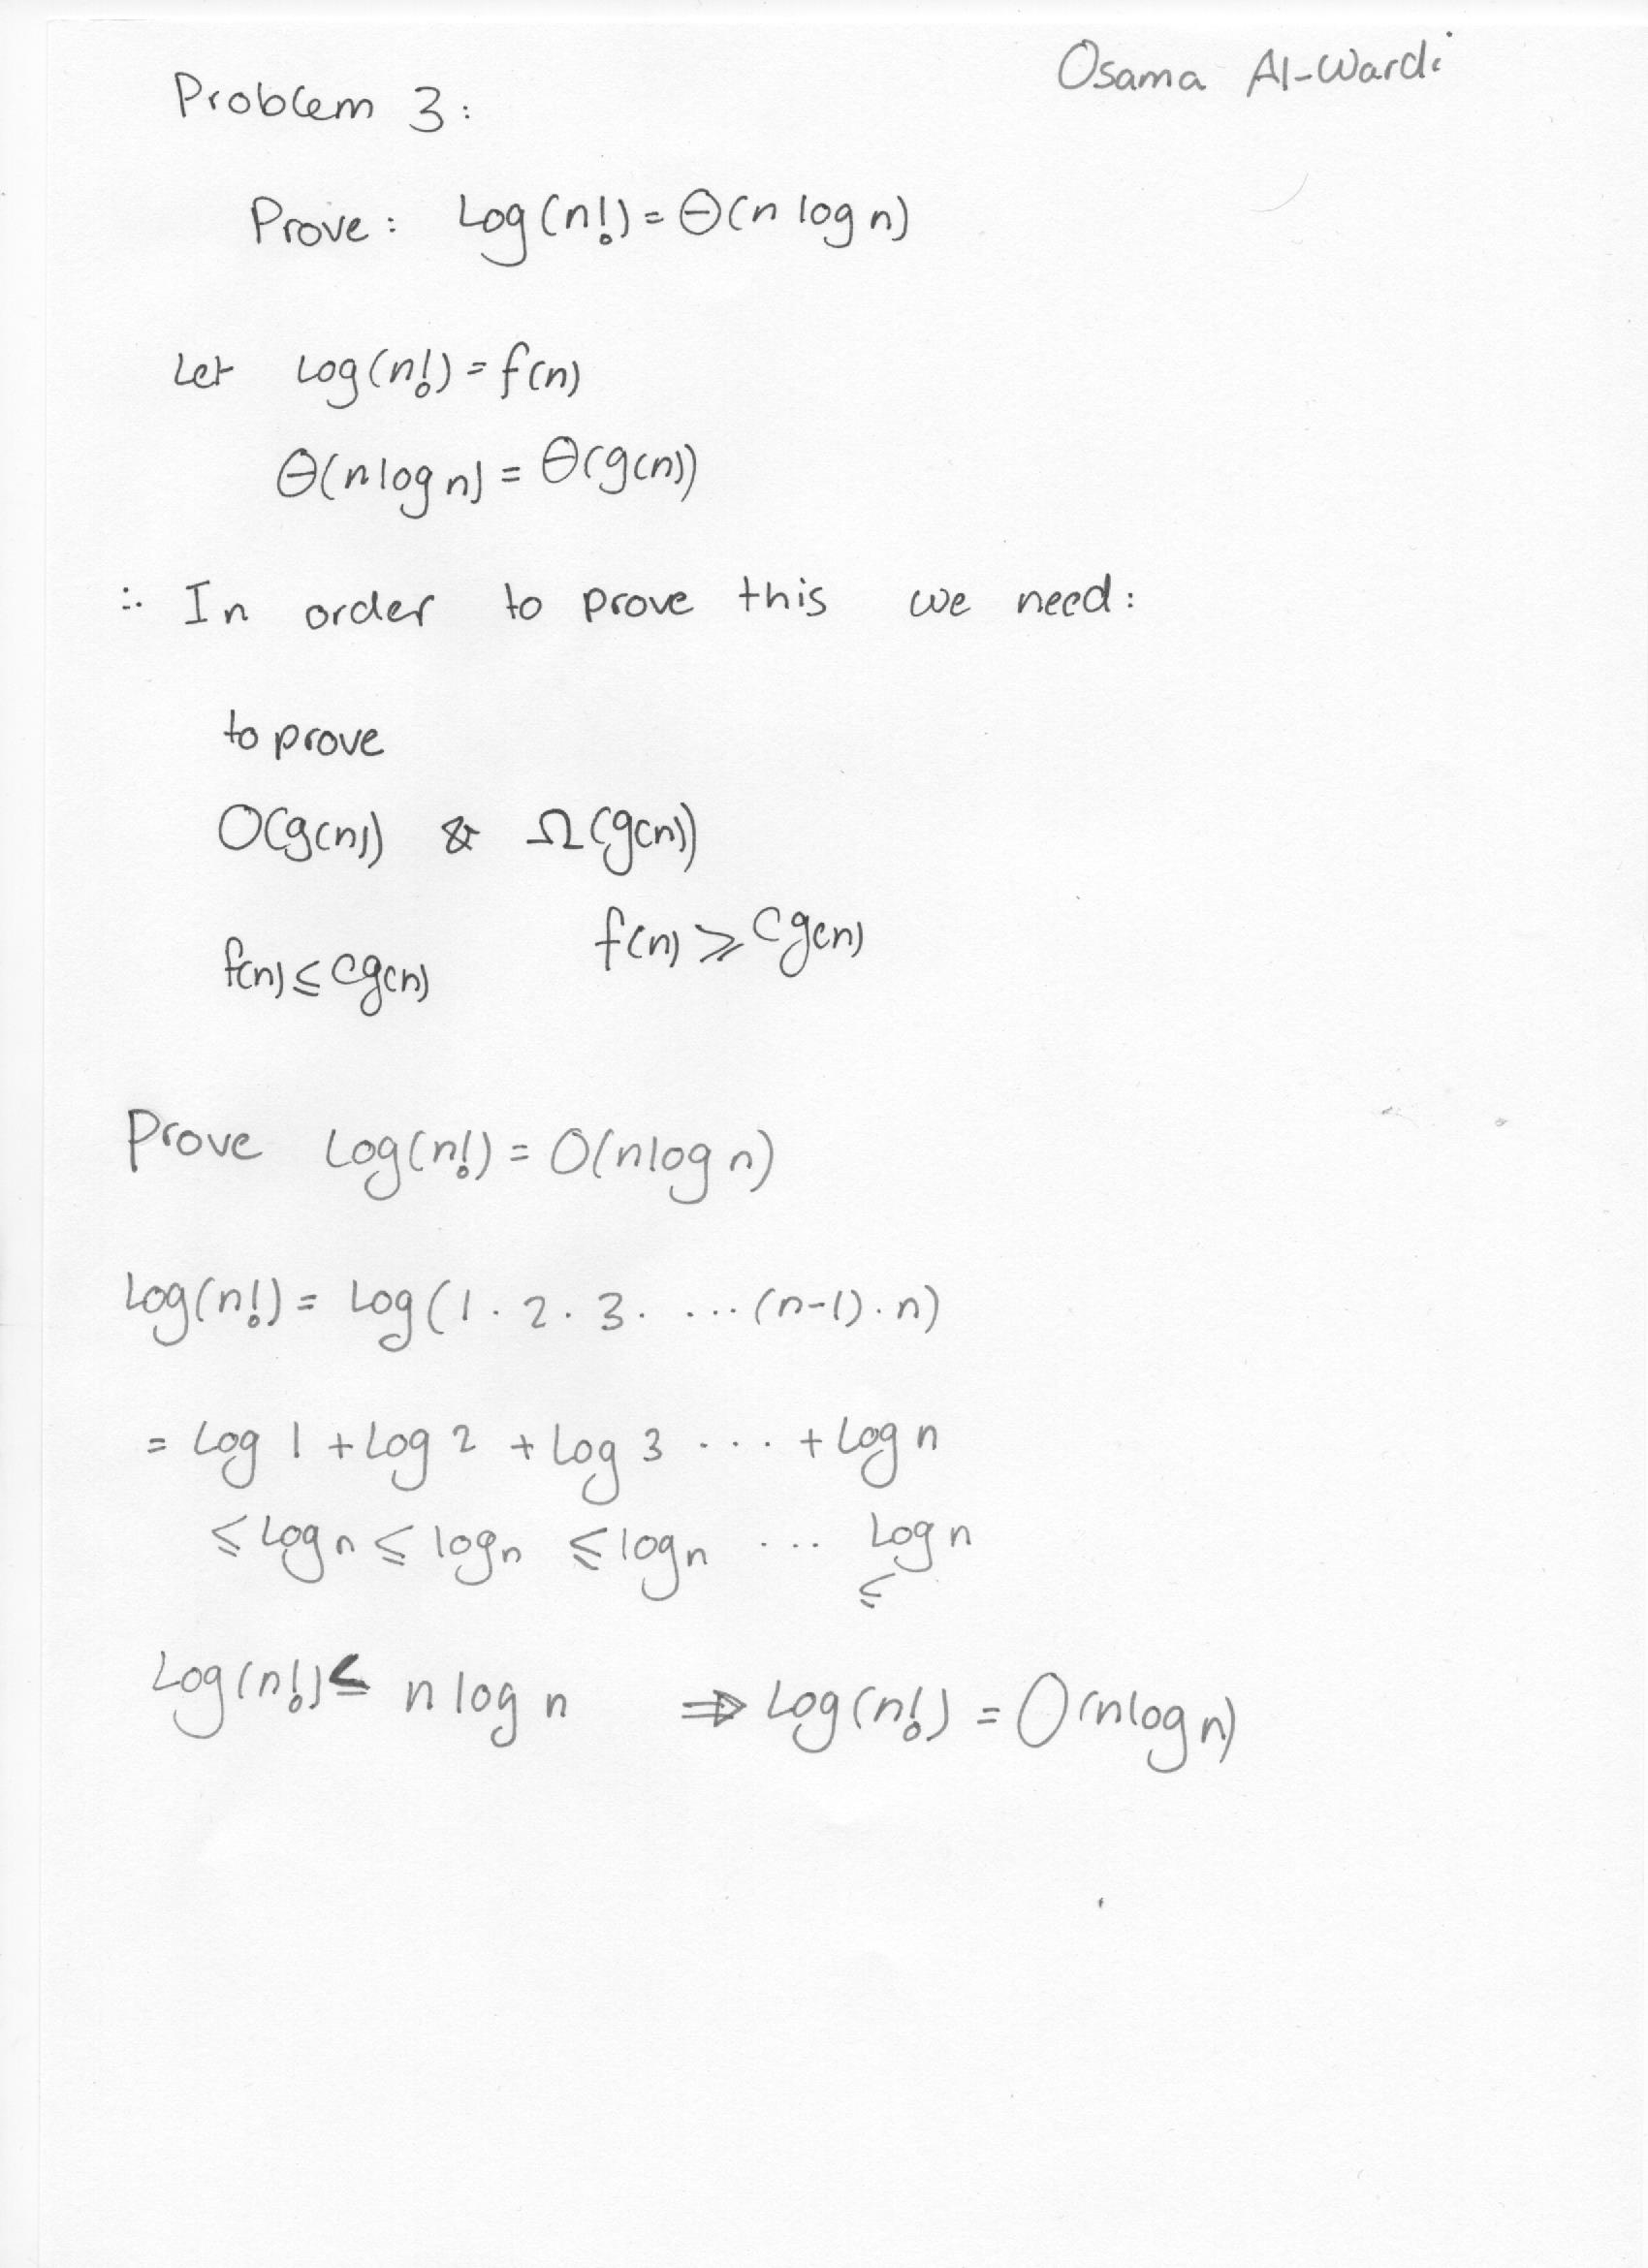 Osama Al-Wardi
Problem 3:
Prove: Log(n!) = Θ(n log n)
Let Log(n!) = f(n)
Θ(n log n) = Θ(g(n))
∴ In order to prove this we need:
to prove
O(g(n)) & Ω(g(n))
f(n) ≤ cg(n) f(n) ≥ cg(n)
Prove Log(n!) = O(nlog n)
Log(n!) = Log(1 · 2 · 3 · ... (n-1) · n)
= Log 1 + Log 2 + Log 3 ... + Log n
≤ Log n ≤ log n ≤ log n ... Log n
≤
Log(n!) ≤ n log n ⇒ Log(n!) = O(nlog n)